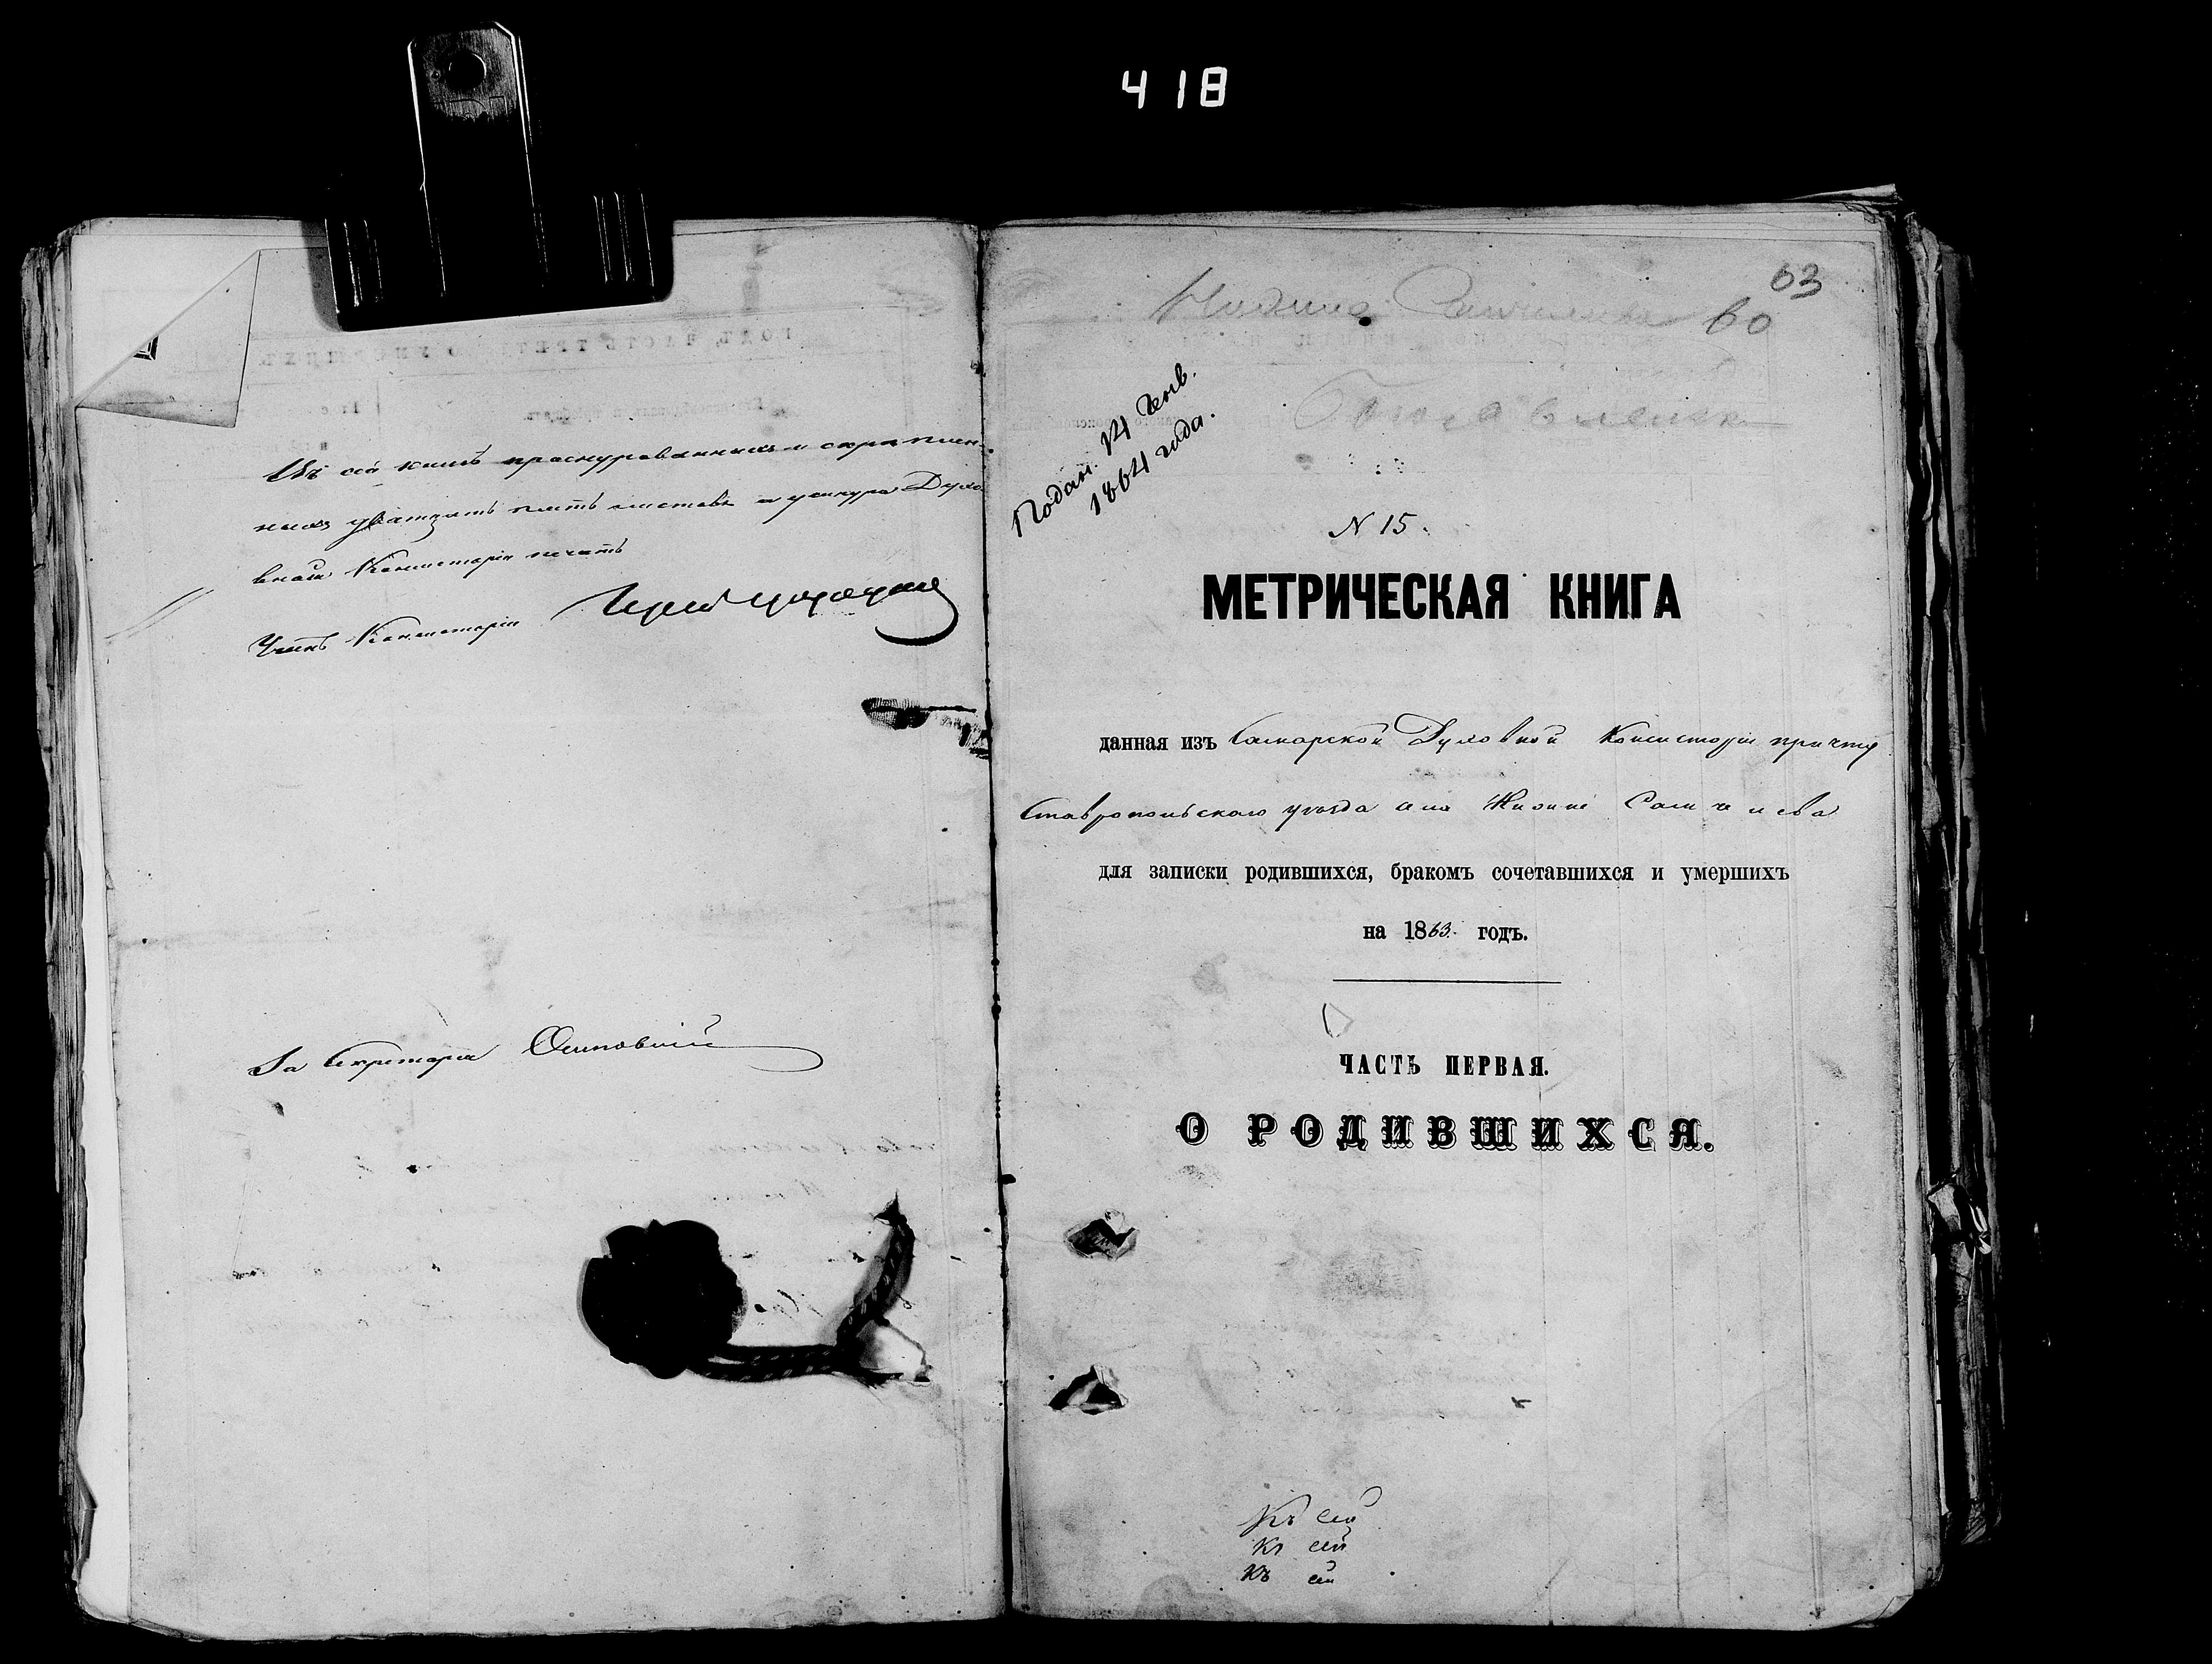 418
Въ сей книгѣ прошнурованныхъ и скрѣплен-
ныхъ двадцать пять листовъ и у шнура Духо
вной Консисторіи печать
Членъ Консисторіи
За Секретаря Осиповскій
63
60
Подан. 14 Генв.
1864 года.
N 15.
МЕТРИЧЕСКАЯ КНИГА
данная изъ Самарской Духовной Консисторіи причту
Ставропольскаго уѣзда села
для записки родившихся, бракомъ сочетавшихся и умершихъ
на 1863. годъ.
ЧАСТЬ ПЕРВАЯ.
О РОДИВШИХСЯ.
Къ сей
Къ сей
Къ сей